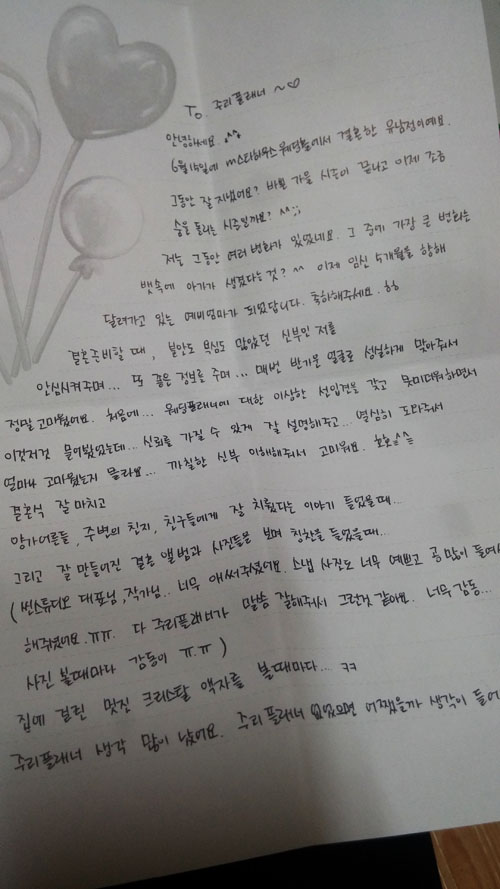 To 주리플래너 ~♡
안녕하세요. ^^
6월 15일에 m스타하우스 웨딩홀에서 결혼한 유남정이예요.
그동안 잘 지냈어요? 바쁜 가을 시즌이 끝나고 이제 조금
숨을 돌리는 시즌일까요? ^^;;
저는 그동안 여러변화가 있었네요. 그 중에 가장 큰 변화는
뱃속에 아가가 생겼다는것? ^^ 이제 임신 5개월을 향해
달려가고 있는 예비엄마가 되었답니다. 축하해주세요. ㅎㅎ
결혼준비할 때, 불안도 의심도 많았던 신부인 저를
안심시켜주며... 또 좋은 정보를 주며... 매번 반가운 얼굴로 성실하게 맞아주서
정말 고마웠어요. 처음에... 웨딩플래너에 대한 이상한 선입견을 갖고 못미더워하면서
이것저것 물어봤었는데... 신뢰를 가질 수 있게 잘 설명해주고... 열심히 도와주서
얼마나 고마웠는지 몰라요... 까칠한 신부 이해해주서 고마워요. 호호^^
결혼식 잘 마치고
양가어른들, 주변의 친지, 친구들에게 잘 치뤘다는 이야기 들었을때...
그리고 잘 만들어진 결혼 앨범과 사진들을 보며 칭찬을 들었을때...
(썬스튜디오 대표님, 작가님.. 너무 애써주셨어요. 스냅 사진도 너무 예쁘고 공 많이 들여서
해주셨어요. ㅠㅠ. 다 주리플래너가 말씀 잘해주서 그런것 같아요. 너무 감동...
사진 볼때마다 감동이 ㅠㅠ)
집에 걸린 멋진 크리스탈 액자를 볼때마다... ㅋㅋ
주리플래너 생각 많이 났어요. 주리플래너 없었으면 어쨌을까 생각이 들어